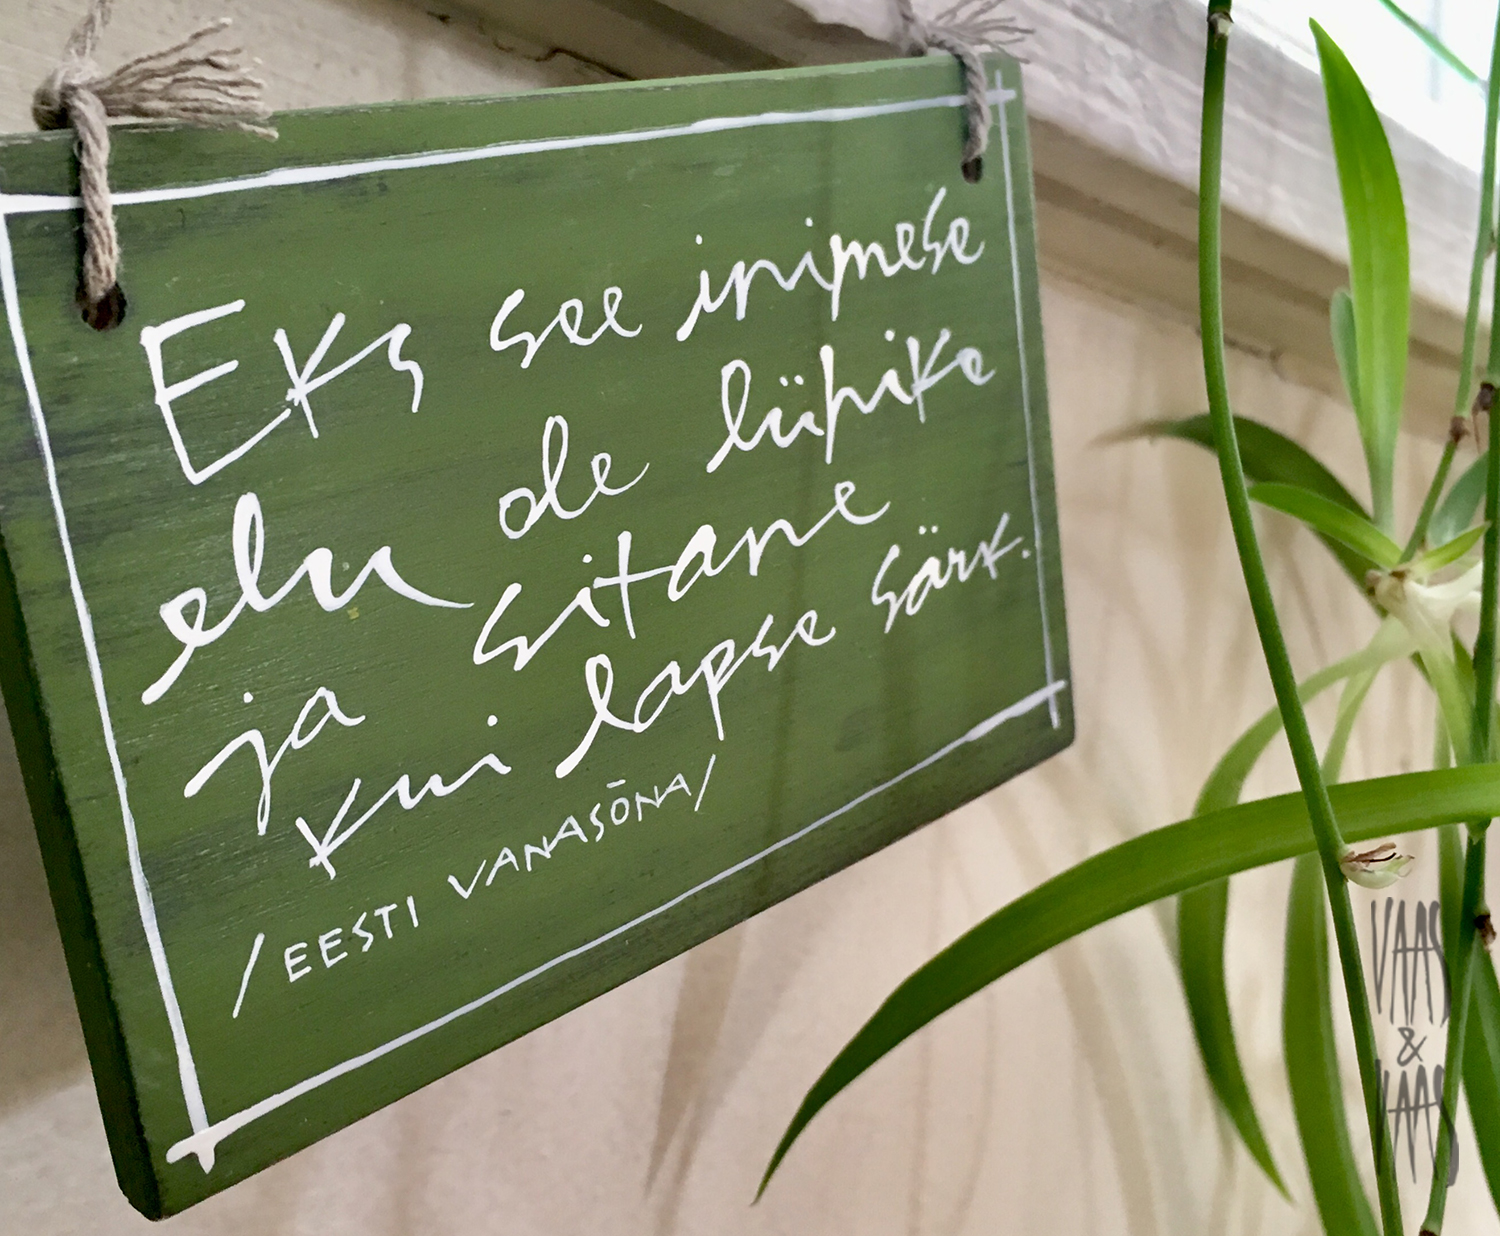 Eks see inimese
elu ole lühike
ja sitane
kui lapse särk.
/EESTI VANASÕNA/
VAAS
&
VAAS